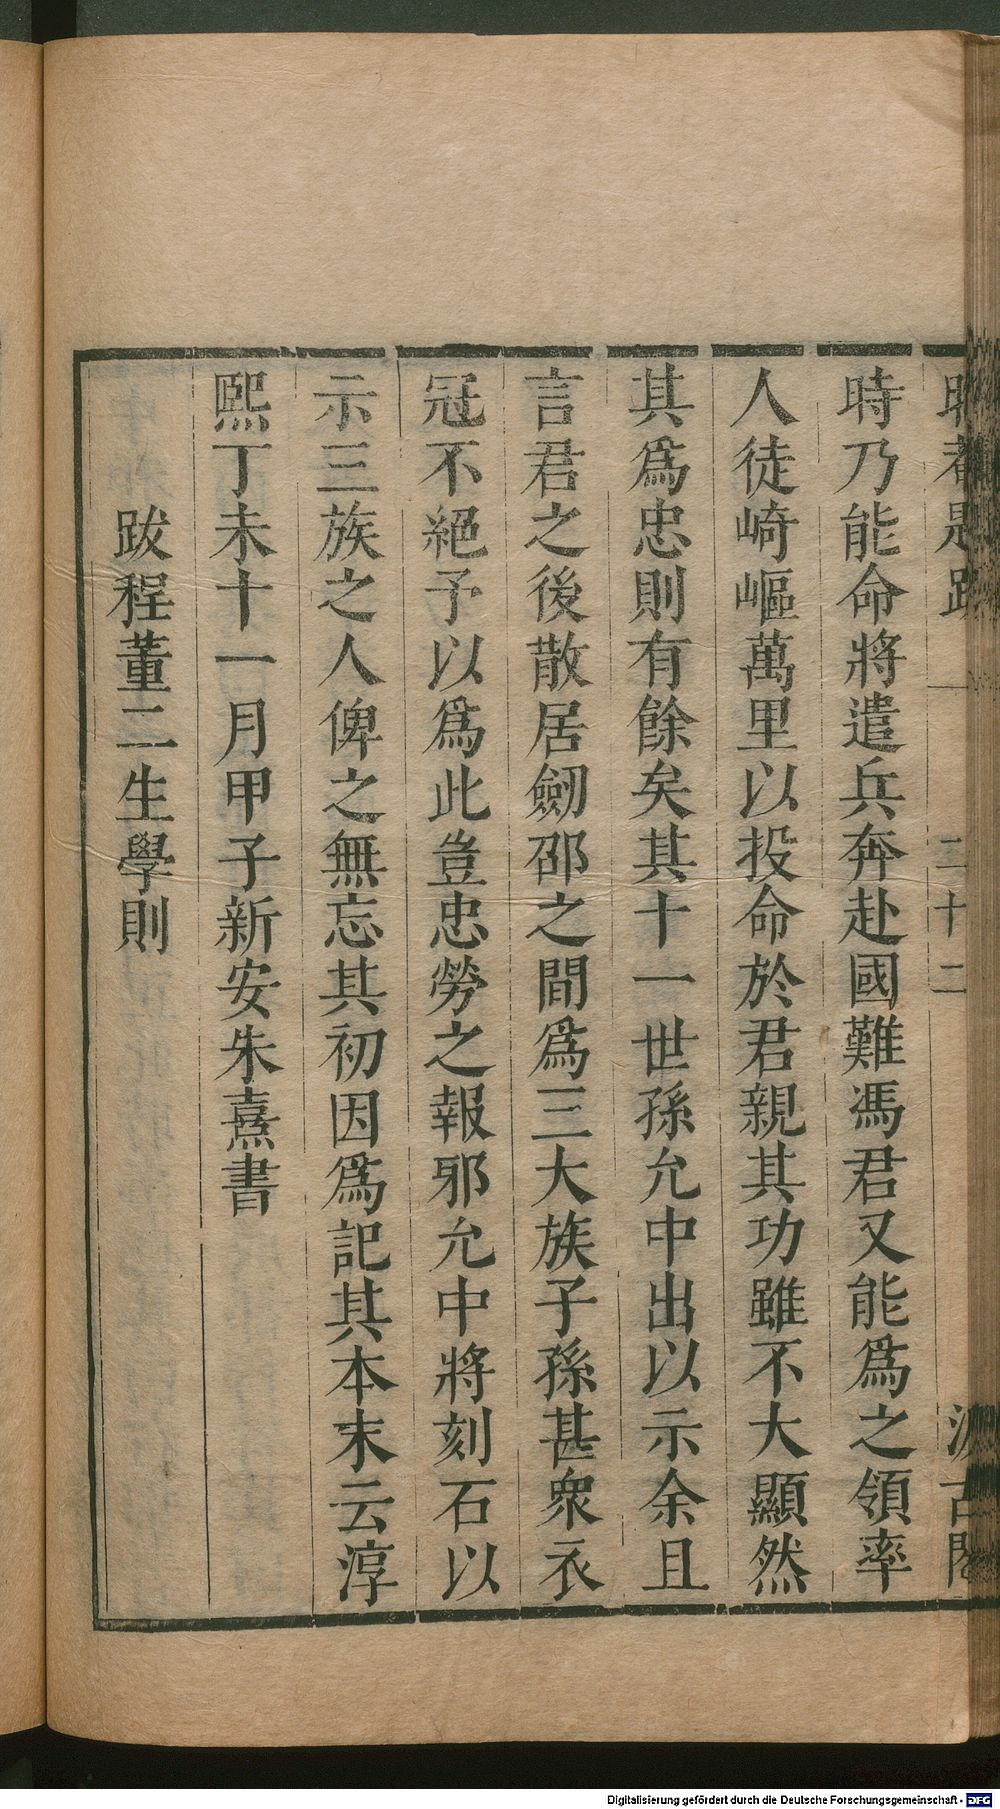 時乃能命將遣兵奔赴國難馮君又能爲之領率
人徒崎嶇萬里以投命於君親其功雖不大顯然
其爲忠則有餘矣其十一世孫允中出以示余且
言君之後散居劒邵之間爲三大族子孫甚衆衣
冠不絕予以爲此豈忠勞之報邪允中將刻石以
示三族之人俾之無忘其初因爲記其本末云淳
熙丁未十一月甲子新安朱熹書
跋程董二生學則
二十二
Digitalisierung gefördert durch die Deutsche Forschungsgemeinschaft - DFG